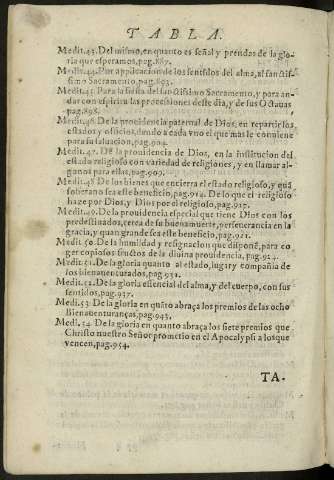 TABLA.
Medit.43. Del mismo, en quanto es señal y prendas de la glo-
ria que esperamos, pag.887.
Medit.44. Por applicacion de los sentidos del alma, al sanctis-
simo Sacramento, pag.893.
Medit.45. Para la fiesta del sanctissimo Sacramento, y para an-
dar con espiritu las processiones deste dia, y de sus Octauas,
pag.898.
Medit.46. De la prouidencia paternal de Dios, en repartir los
estados y officios, dando a cada vno el que mas le conuiene
para su saluacion, pag.904.
Medit.47. De la prouidencia de Dios, en la institucion del
estado religioso con variedad de religiones, y en llamar al-
gunos para ellas, pag.909.
Medit.48 De los bienes que encierra el estado religioso, y quã
soberano sea este beneficio, pag.914. De lo que el religioso
haze por Dios, y Dios por el religioso, pag.917.
Medit.49. De la prouidencia especial que tiene Dios con los
predestinados, cerca de su buena muerte, perseuerancia en la
gracia, y quan grande sea este beneficio, pag.921.
Medit.50. De la humildad y resignacion que dispone, para co
ger copiosos fructos de la diuina prouidencia, pag.924.
Medit.51. De la gloria quanto al estado, lugar y compañia de
los bienauenturados, pag.931.
Medit.52. De la gloria essencial del alma, y del cuerpo, con sus
sentidos, pag.937.
Medi.53. De la gloria en quãto abraça los premios de las ocho
Bienauenturanças, pag.943.
Medi.54. De la gloria en quanto abraça los siete premios que
Christo nuestro Señor prometio en el Apocalypsi a los que
vencen, pag.954.
TA-